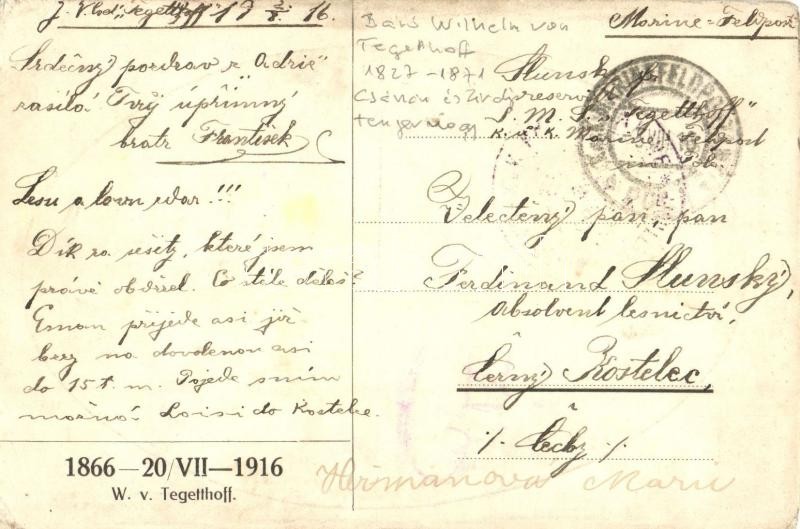 J. V. loď „Tegetthoff" 17 2/8. 16.
Srdečný pozdrav z Adrie
zasílá Tvůj upřímný
bratr František
Lesu a lovu zdar!!!
Dík za sešity, které jsem
právě obdržel. Co stále děláš?
Eman přijede asi již
brzy na dovolenou asi
do 15 t. m. Pojede s ním
možná Loisi do Kostelce.
1866—20/VII—1916
W. v. Tegetthoff.
Báró Wilhelm von
Tegetthoff
1827-1871
Császári és Királyi
tengernagy
Marine-Feldpost
Slunský
reservi
S. M. S. „Tegetthoff"
K. u. K. Marinefeldpost
Pola
Velectěný pan, pan
Ferdinand Slunský,
absolvent lesnictví,
Černý Kostelec,
·/· Čechy ·/·
Heřmanova Marie